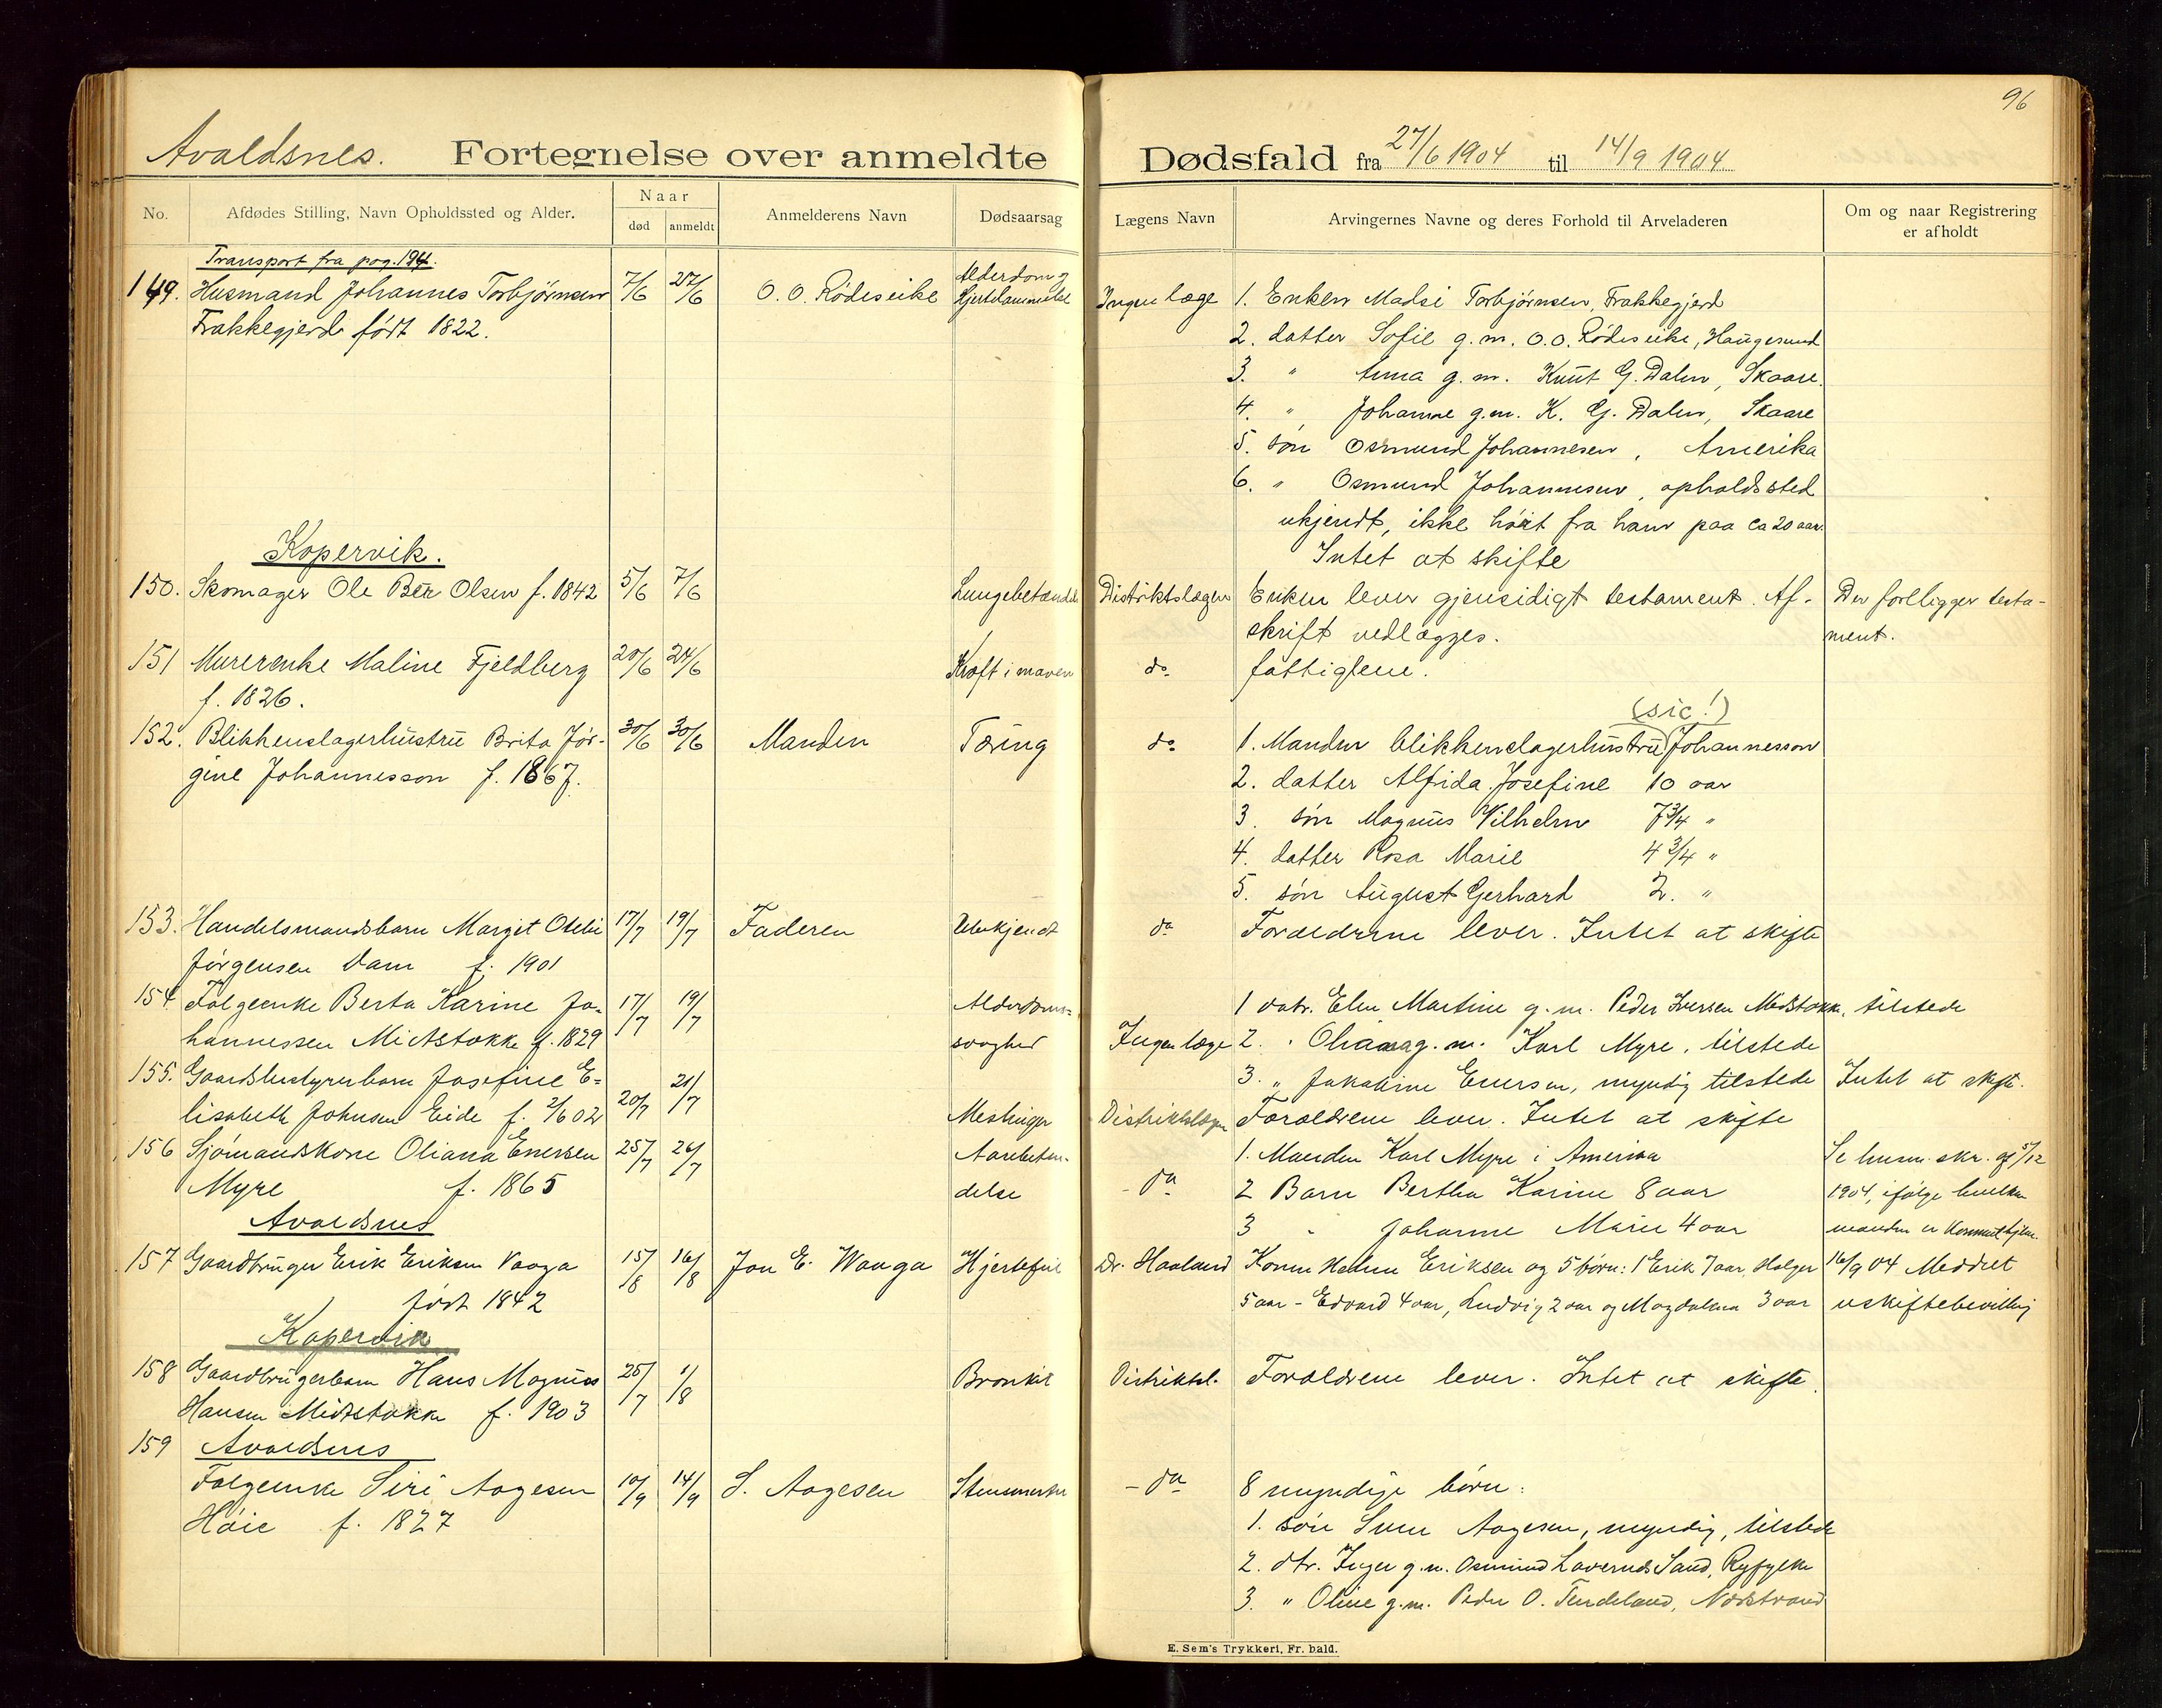 96
Avaldsnes. Fortegnelse over anmeldte Dødsfald fra 27/6 1904 til 14/9 1904
No. Afdødes Stilling, Navn Opholdssted og Alder. Naar død anmeldt Anmelderens Navn Dødsaarsag Lægens Navn Arvingernes Navne og deres Forhold til Arveladeren Om og naar Registrering er afholdt
Transport fra pag. 194.
149. Husmand Johannes Torbjørnsen 7/6 27/6 O. O. Rødeseike Alderdom og Ingen læge 1. Enken Madsi Torbjørnsen, Frakkegjerd
Frakkegjerd født 1822. 2. datter Sofie g.m. O.O. Rødeseike, Haugesund
3. " Anna g.m. Knut G. Dalen, Skaare.
4. " Johanne g.m. K. G. Dalen, Skaare
5. søn Osmund Johannesen, Amerika
6. " Osmund Johannesen, opholdssted
ukjendt, ikke hørt fra ham paa ca 20 aar.
Intet at skifte
Kopervik.
150. Skomager Ole Olsen f. 1842 5/6 7/6 Lungebetændelse Distriktslægen Enken lever gjensidigt testament. Af- Der forligger testa-
skrift vedlægges. ment.
151 Murerenke Maline Fjeldberg 20/6 24/6 Kræft i maven do fattiglem.
f. 1826.
(sic!)
152. Blikkenslagerhustru Brita Jør- 30/6 30/6 Manden Tæring do 1. Manden blikkenslagerhustru Johannesson
gine Johannesson f. 1867. 2. datter Alfida Josefine 10 aar
3. søn Magnus Vilhelm 7 3/4 "
4. datter Rosa Marie 4 3/4 "
5. søn August Gerhard 2. "
153. Handelsmandsbarn Margit Otelie 17/7 19/7 Faderen Ubekjendt do Forældrene lever. Intet at skifte
Jørgensen Dam f. 1901
154 Folgeenke Berta Karine Jo- 17/7 19/7 Alderdoms- 1 datr. Elen Martine g.m. Peder Iversen Midstokke, tilstede
hannessen Midtstokke f. 1829 svaghed Ingen læge 2. " Oliana g.m. Karl Myre, tilstede
155. Gaardbestyrerbarn Josefine E- 20/7 21/7 3. " Jakobine Enersen, myndig tilstede Intet at skifte.
lisabeth Johnsen Eide f. 2/6 02 Meslinger Distriktslægen Forældrene lever. Intet at skifte
156 Sjømandskone Oliana Enersen 25/7 26/7 Aarebeten- 1. Manden Karl Myre i Amerika Se skr. af 5/12
Myre f. 1865 delse - do 2 Barn Bertha Karine 8 aar 1904, ifølge hvilken
Avaldsnes 3 " Johanne Marie 4 aar manden er
157 Gaardbruger Erik Eriksen Vaaga 15/8 16/8 Jon E. Waaga Hjertefeil Dr. Haaland Konen Helene Eriksen og 5 børn: 1 Erik 7 aar, Holger 16/9 04 Meddelt
født 1842 5 aar - Edvard 4 aar, Ludvig 2 aar og Magdalena 3 aar uskiftebevilling
Kopervik
158 Gaardbrugerbarn Hans Magnus 25/7 1/8 Bronkit Distriktsl. Forældrene lever. Intet at skifte.
Hansen Midtstokke f. 1903
159 Avaldsnes
Folgeenke Siri Aagesen 10/9 14/9 S. Aagesen - do 8 myndige børn:
Høie f. 1827 1. søn Sven Aagesen, myndig, tilstede
2. dtr. Inger g.m. Osmund Sand, Ryfylke
3. " Oline g.m. Peder O. Tendeland, Nedstrand
E. Sem's Trykkeri, Fr. hald.